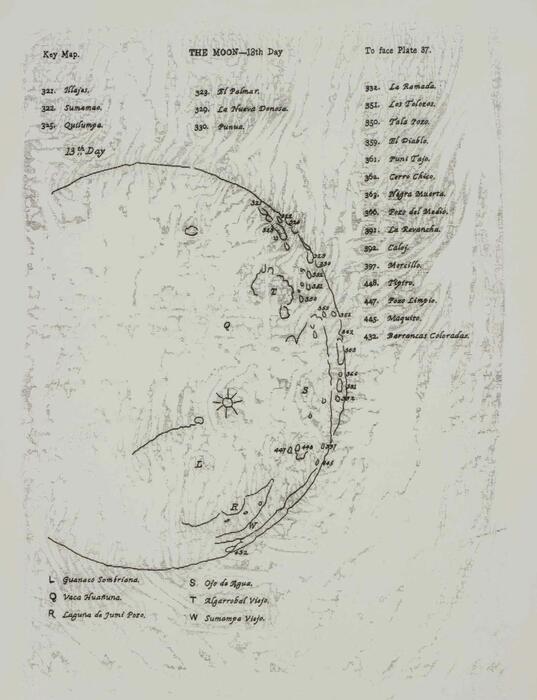 Key Map.
THE MOON—13th Day
To face Plate 37.
321. Illajes.
322. Sumamao.
325. Quilumpa.
323. El Palmar.
329. La Nueva Donosa.
330. Punua.
332. La Ramada.
351. Los Tolozos.
350. Tala Pozo.
359. El Diablo.
361. Puni Tajo.
362. Cerro Chico.
363. Negra Muerta.
366. Pozo del Medio.
391. La Revancha.
392. Caloj.
397. Morcillo.
448. Tiptro.
447. Pozo Limpio.
445. Maquito.
432. Barrancas Coloradas.
13th Day
321
322
325
329
330
332
351
350
T
Q
359
361
362
363
366
391
392
S
L
447
448
397
445
R
W
432
L Guanaco Sombriana.
Q Vaca Huañuna.
R Laguna de Jumi Pozo.
S Ojo de Agua.
T Algarrobal Viejo.
W Sumampa Viejo.